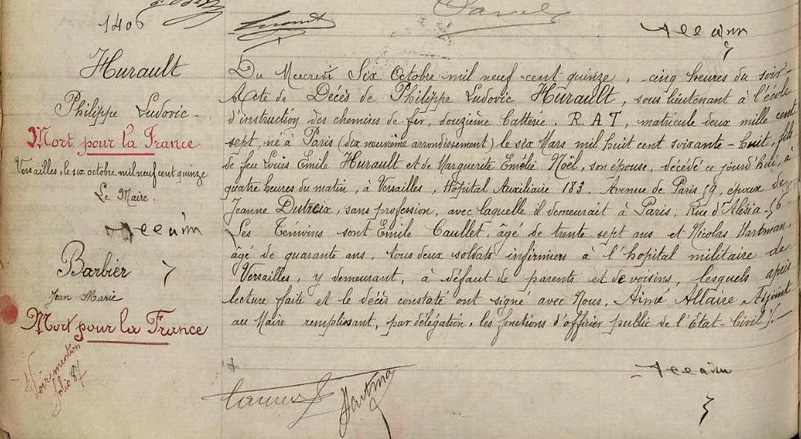 1406
Hurault
Philippe Ludovic -
Mort pour la France
Versailles, le six octobre mil neuf cent quinze
Le Maire.
Barbier
Jean Marie
Mort pour la France
Voir mention
folio 87
Du Mercredi Six Octobre mil neuf cent quinze, cinq heures du soir -
Acte de Décès de Philippe Ludovic Hurault, sous lieutenant à l'école
d'instruction des chemins de fer, douzième batterie. R.A.T, matricule deux mille cent
sept, né à Paris (dix neuvième arrondissement) le six Mars mil huit cent soixante - huit, fils
de feu Louis Emile Hurault et de Marguerite Emélie Noël, son épouse, décédé ce jourd'hui, à
quatre heures du matin, à Versailles, Hôpital Auxiliaire 183. Avenue de Paris 59, époux de
Jeanne Dutreix, sans profession, avec laquelle il demeurait à Paris. Rue d'Alésia - 56
Les Témoins sont Emile Caullet, âgé de trente sept ans et Nicolas Hartman,
âgé de quarante ans, tous deux soldats infirmiers à l'hopital militaire de
Versailles, y demeurant, à défaut de parents et de voisins, lesquels après
lecture faite et le décès constaté ont signé avec Nous, Aimé Allaire, Adjoint
au Maire remplissant, par délégation, les fonctions d'officier public de l'Etat-Civil /. -
Hartman